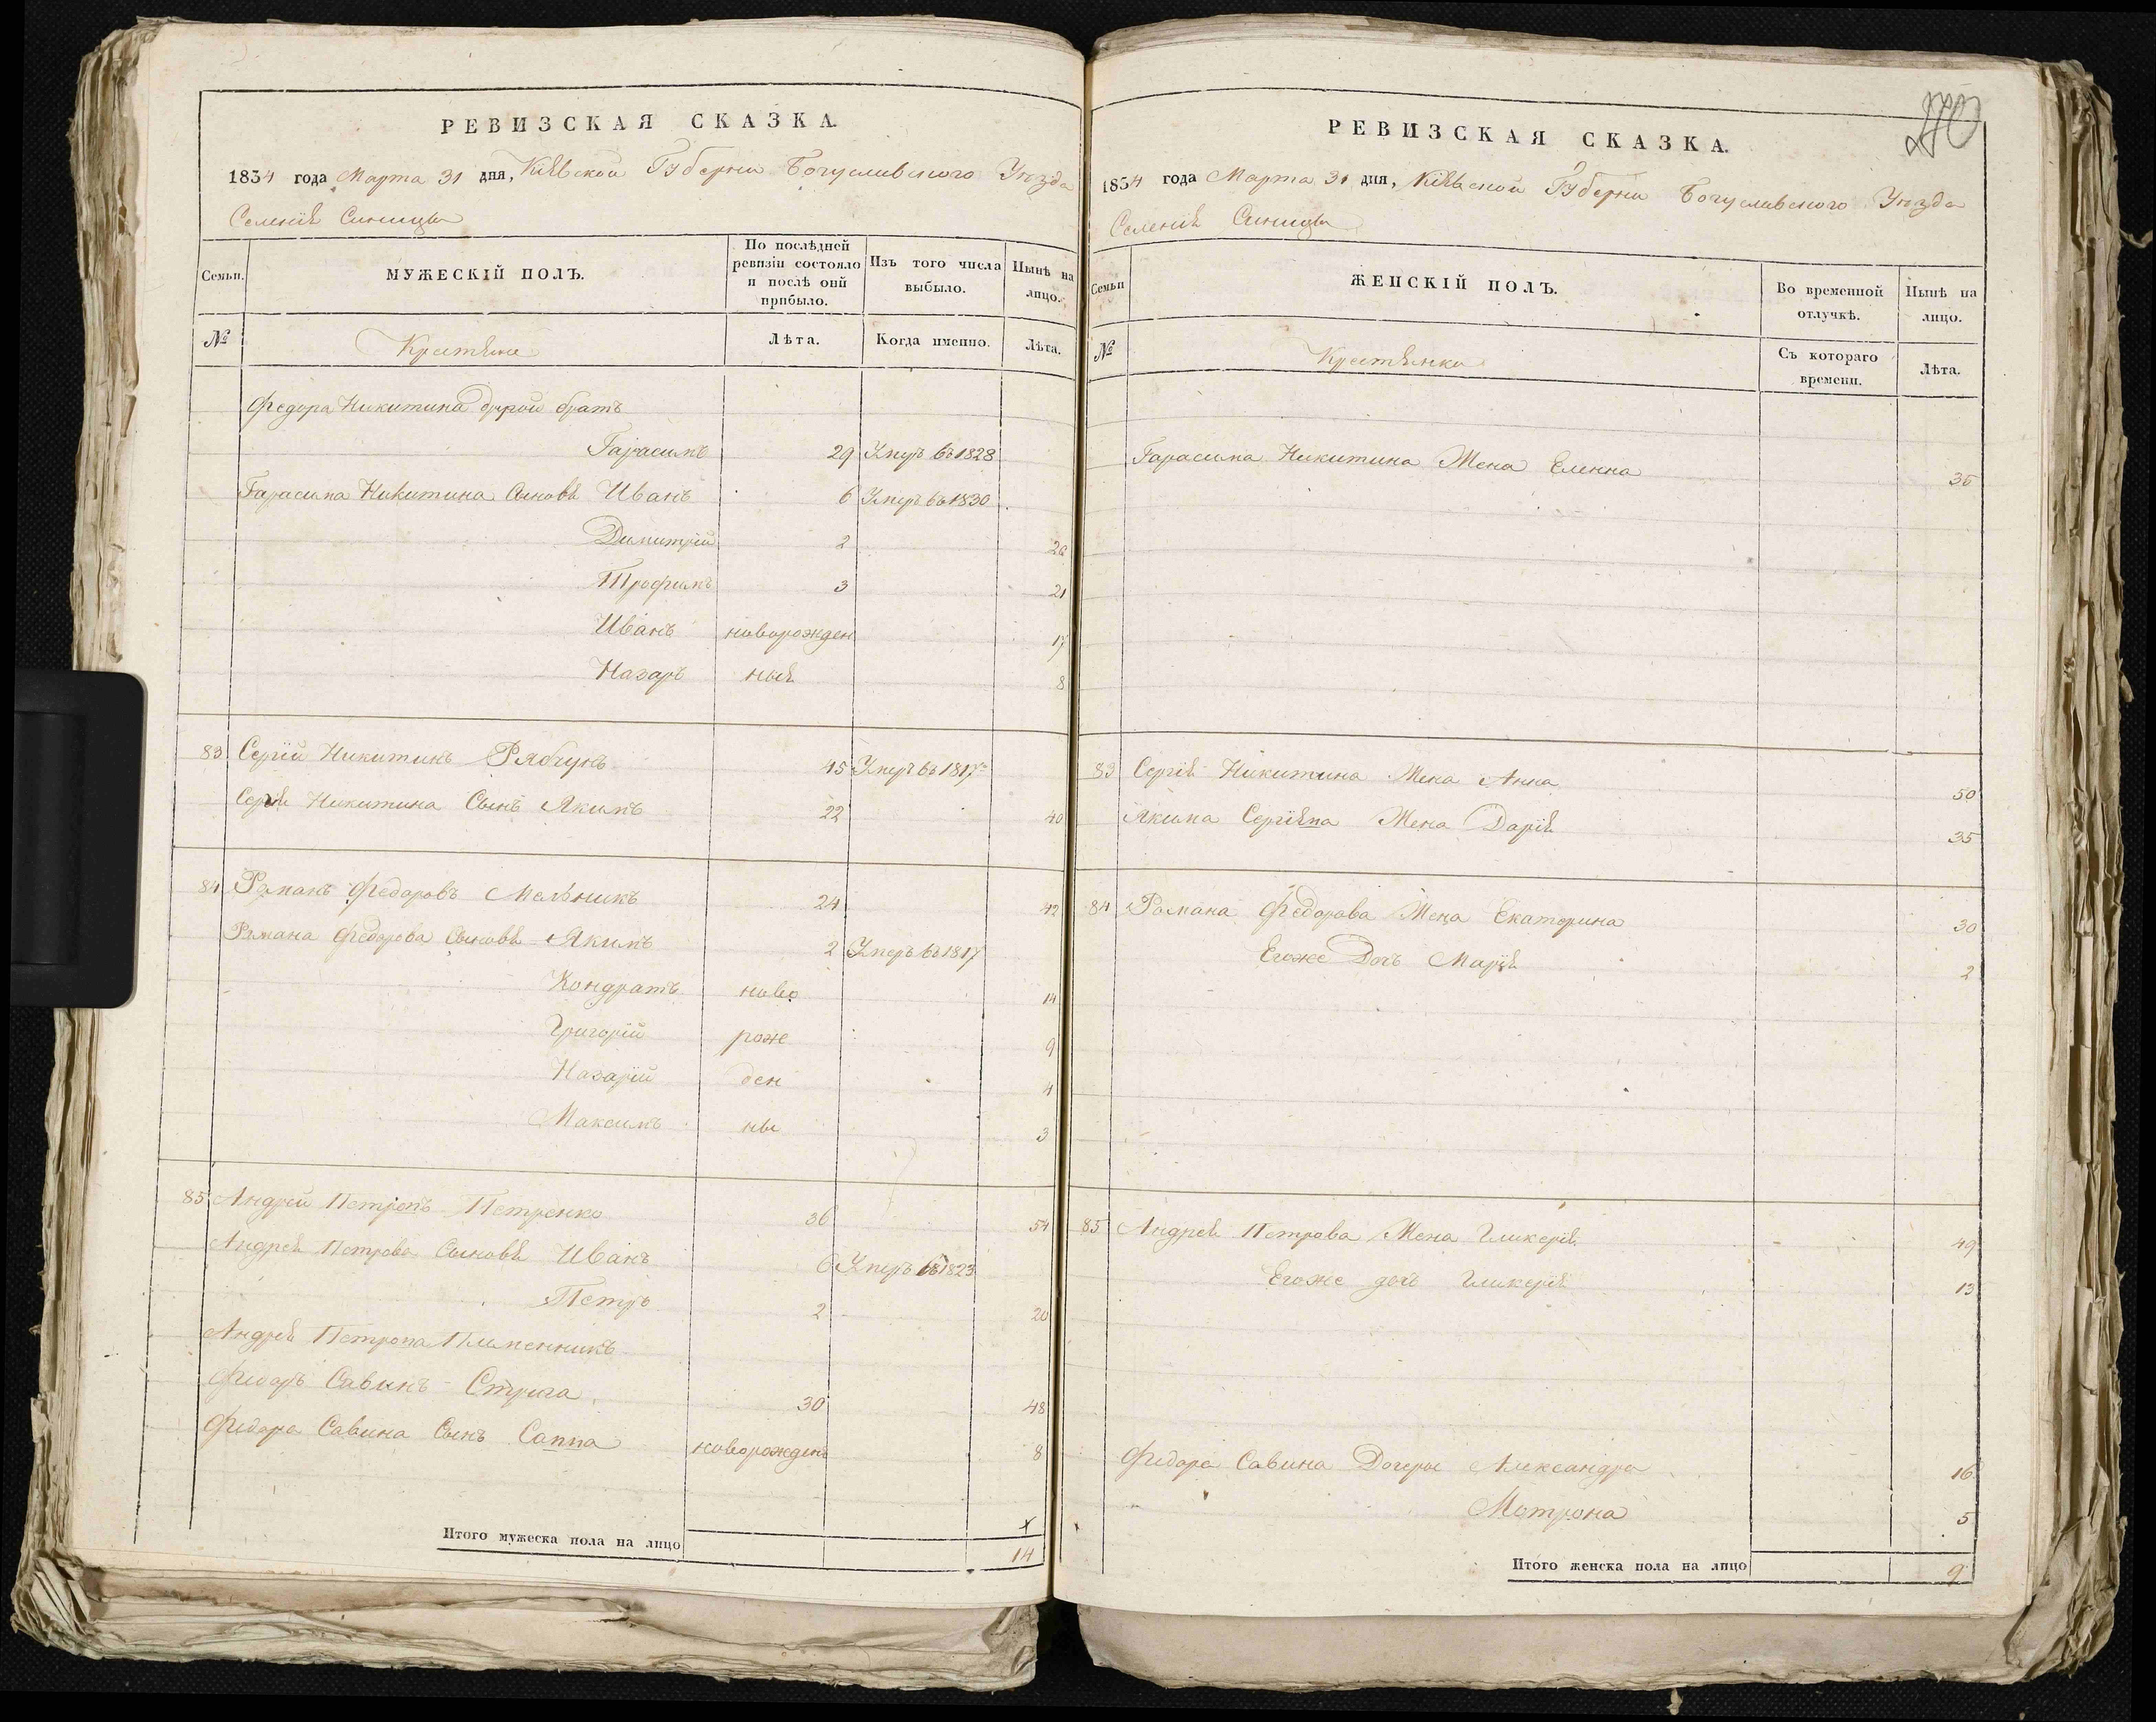 РЕВИЗСКАЯ СКАЗКА.
1834 года Марта 31 дня, Кіевской Губерни Богуславского Уезда
Селенія Синицы
Семьи.
МУЖЕСКІЙ ПОЛЪ.
По послѣдней ревизіи состояло и послѣ оній прибыло.
Изъ того числа выбыло.
Нынѣ на лицо.
№
Крестьяне
Лѣта.
Когда именно.
Лѣта.
Федора Никитина другой братъ
Гарасимъ 29 Умеръ въ 1828
Гарасима Никитина Сыновя Иванъ 6 Умеръ въ 1830
Димитрій 2 20
Трофимъ 3 21
Иванъ новорожден 17
Назаръ ныя 8
83 Сергій Никитинъ Рябчунъ 45 Умеръ въ 1817
Сергія Никитина Сынъ Якимъ 22 40
84 Романъ Федоровъ Мельникъ 24 42
Романа Федорова Сыновя Якимъ 2 Умеръ въ 1817
Кондратъ ново 14
Григорій рож 9
Назарій ден 4
Максимъ ны 3
85 Андрей Петровъ Петренко 36 54
Андрея Петрова Сыновя Иванъ 6 Умеръ въ 1823
Петръ 2 20
Андрея Петрова Племенникъ
Федоръ Савинъ Стрига 30 48
Федора Савина Сынъ Савва новорожден 8
Итого мужеска пола на лицо 14
270
РЕВИЗСКАЯ СКАЗКА.
1834 года Марта 31 дня, Кіевской Губерни Богуславского Уезда
Селенія Синицы
Семьи
ЖЕНСКІЙ ПОЛЪ.
Во временной отлучкѣ.
Нынѣ на лицо.
№
Крестянки
Съ котораго времени.
Лѣта.
Гарасима Никитина Жена Еленна 35
83 Сергія Никитина Жена Анна 50
Якима Сергіева Жена Дарія 35
84 Романа Федорова Жена Екатерина 30
Егоже Дочъ Марія 2
85 Андрея Петрова Жена Гликерія 49
Егоже дочъ Гликерія 13
Федора Савина Дочеры Александра 16
Мотрона 5
Итого женска пола на лицо 9